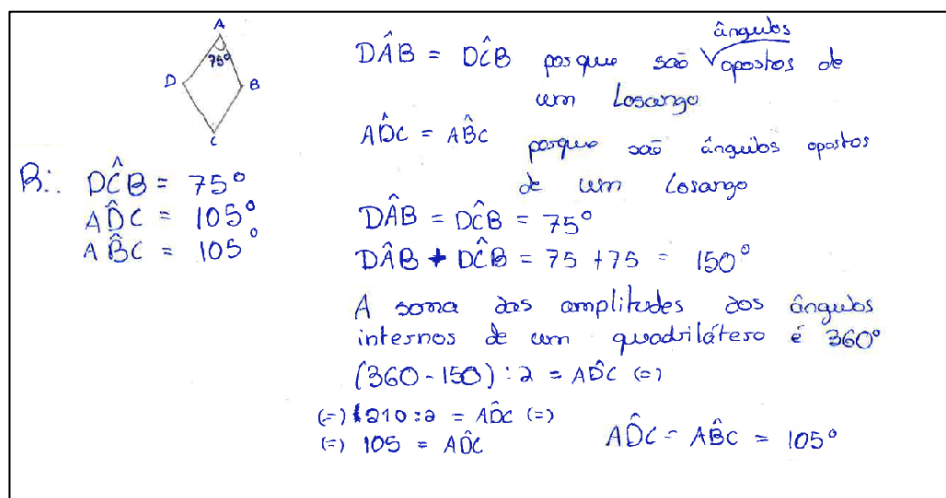 A
75º
D
B
C
R:. DĈB = 75º
AD̂C = 105º
AB̂C = 105º
DÂB = DĈB porque são ângulos opostos de
um Losango
AD̂C = AB̂C porque são ângulos opostos
de um Losango
DÂB = DĈB = 75º
DÂB + DĈB = 75 + 75 = 150º
A soma das amplitudes dos ângulos
internos de um quadrilátero é 360º
(360 - 150) : 2 = AD̂C (=)
(=) 210 : 2 = AD̂C (=)
(=) 105 = AD̂C
AD̂C = AB̂C = 105º